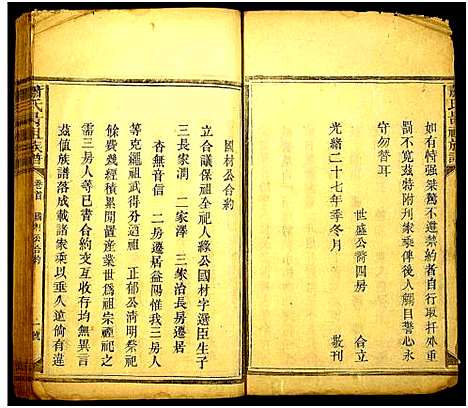 蕭氏昌祖族譜
如有恃强桀驁不遵禁約者自行取扞外重
罰不寬兹特附刊家乘俾後人觸目警心永
守勿替耳
世盛公裔四房 合立
敬刊
光緒二十七年季冬月
國材公合約
立合議保祖全祀人緣公國材字選臣生子
三長家潤 二家澤 三家治長房遷居
杳無音信 二房遷居益陽惟我三房人
等克繩祖武得分遺祖 正郁公清明祭祀
餘費幾經積累開置産業世爲祖宗禋祀之
需三房人等已書合約交互收存均無異言
兹值族譜落成載諸家乘以垂久遠倘有違
蕭氏昌祖族譜 卷首 國材公合約